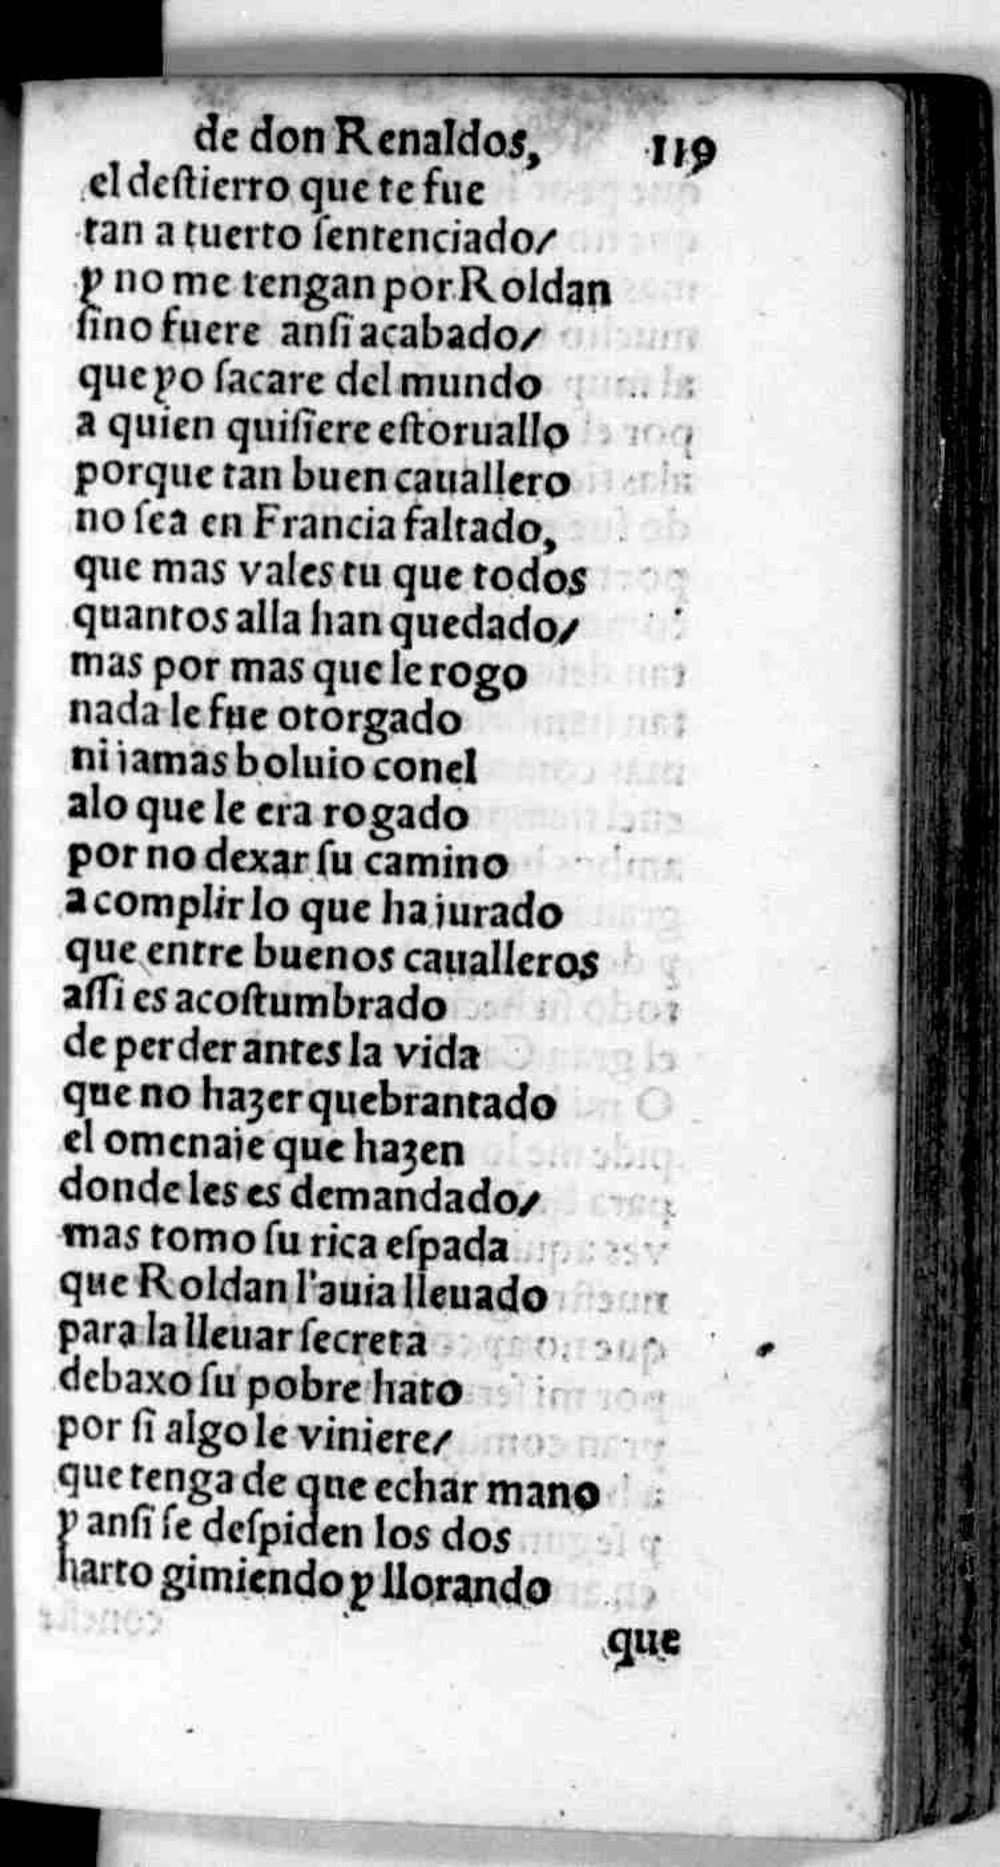 de don Renaldos, 119
el deſtierro que te fue
tan a tuerto ſentenciado/
y no me tengan por Roldan
ſino fuere anſi acabado/
que yo ſacare del mundo
a quien quiſiere eſtoruallo
porque tan buen cauallero
no ſea en Francia faltado,
que mas vales tu que todos
quantos alla han quedado/
mas por mas que le rogo
nada le fue otorgado
ni iamas boluio conel
alo que le era rogado
por no dexar ſu camino
a complir lo que ha jurado
que entre buenos caualleros
aſſi es acoſtumbrado
de perder antes la vida
que no hazer quebrantado
el omenaje que hazen
donde les es demandado/
mas tomo ſu rica eſpada
que Roldan l'auia lleuado
para la lleuar ſecreta
debaxo ſu pobre hato
por ſi algo le viniere/
que tenga de que echar mano
y anſi ſe deſpiden los dos
harto gimiendo y llorando
que